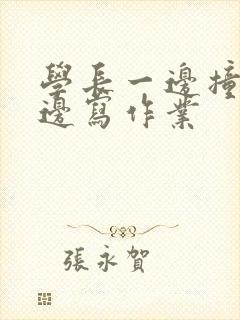 學長一邊撞
邊寫作業
張永賀